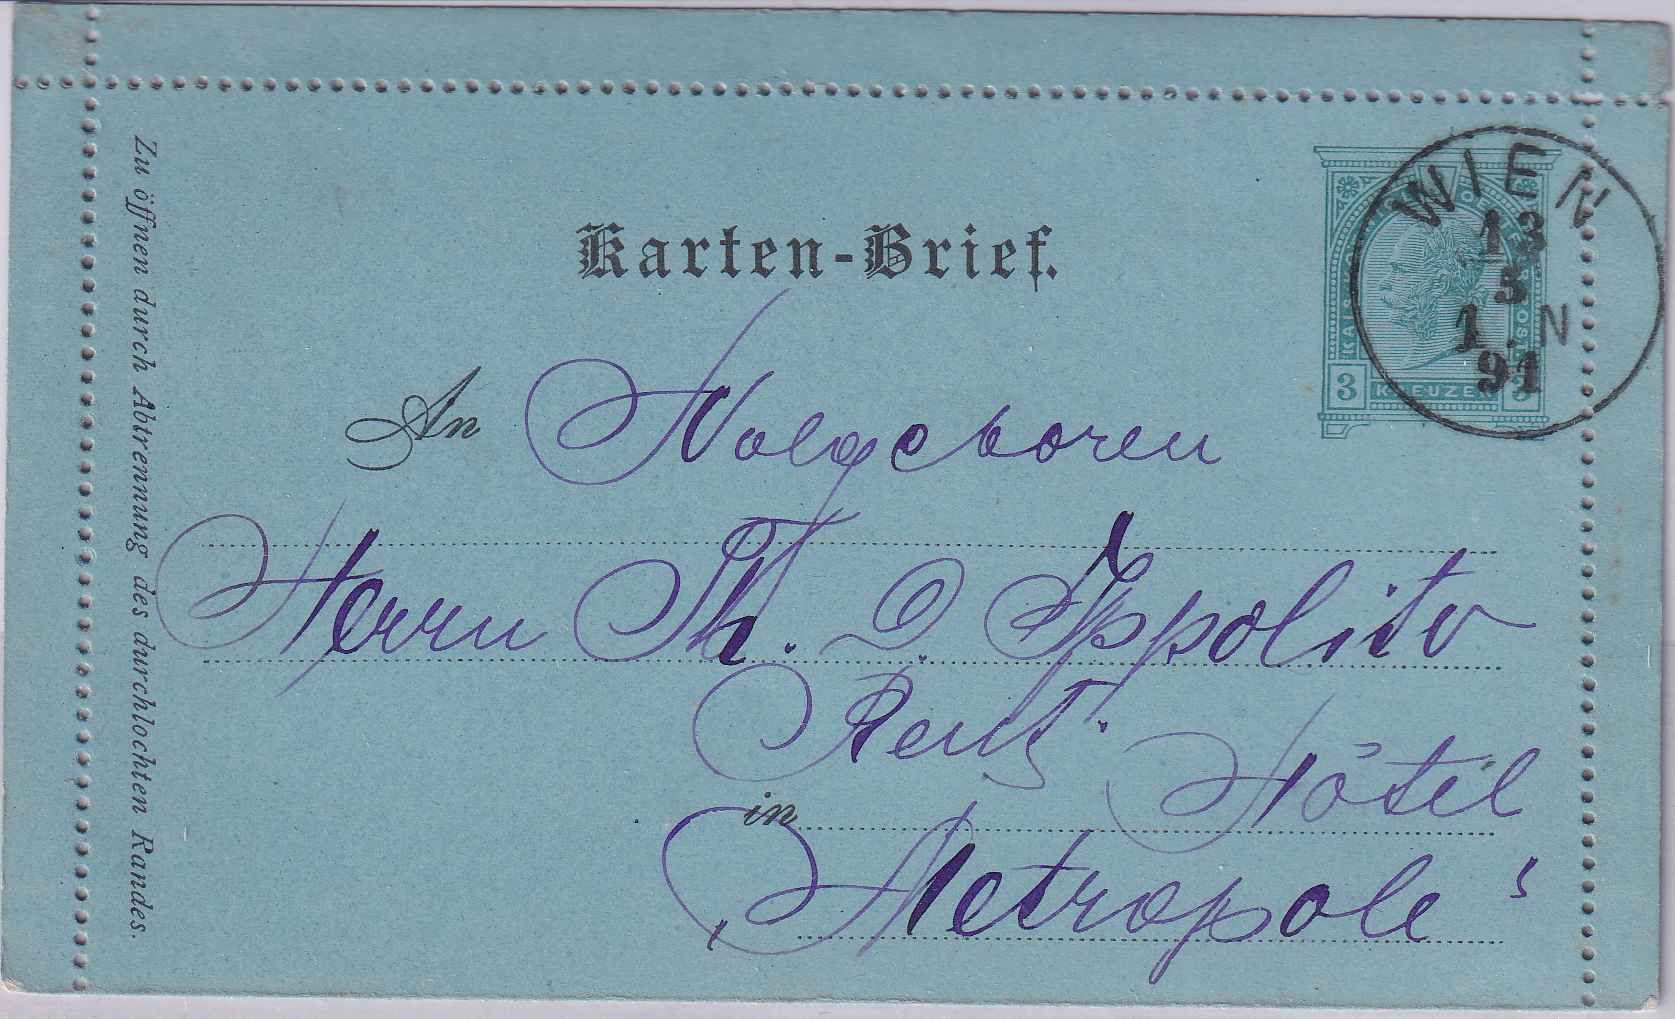 Karten-Brief.
WIEN
13
5
1.N
91
3 KREUZER 3
An Wolgeboren
Herrn Th. D. Ippolito
Hôtel
in
„Metropole“
Zu öffnen durch Abtrennung des durchlochten Randes.